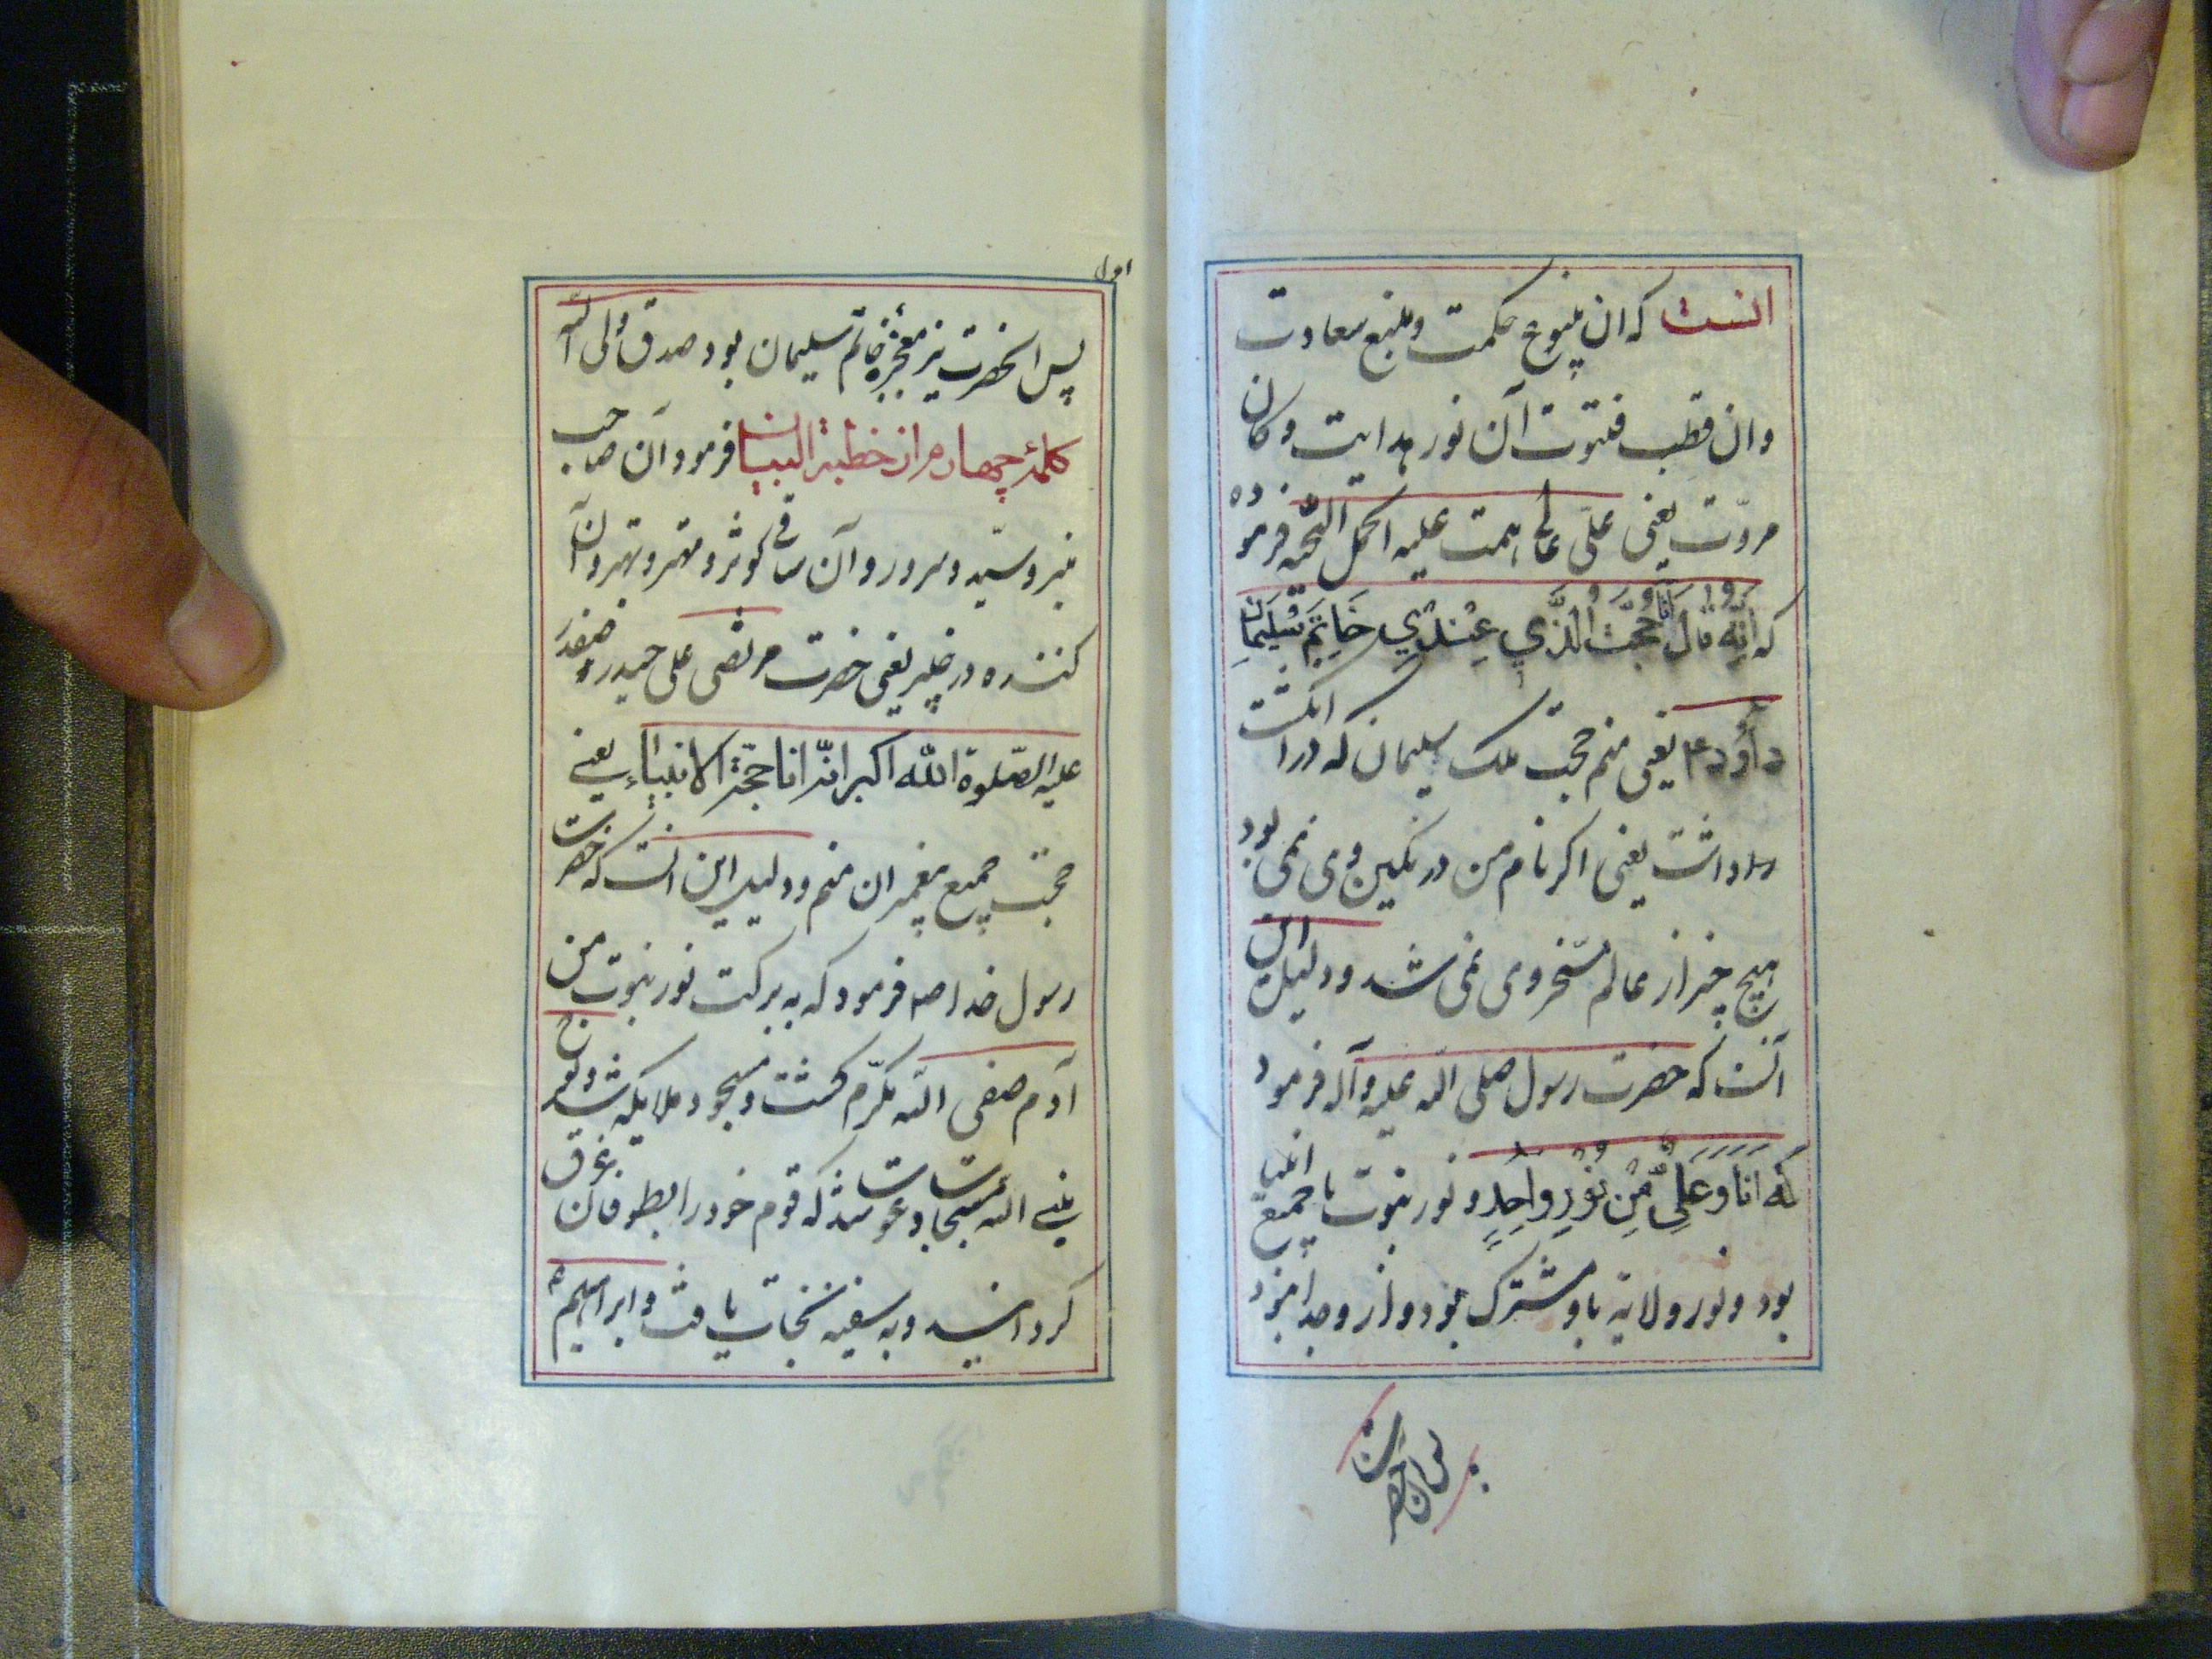 آنست که ان ینبوع حکمت و منبع سعادت
وان قطب فتوت آن نور هدایت و کان
مروّت یعنی علیّ عالی همت علیه اکمل التحیه فرموده
که انّه قال انا حجّت الذّي عِندي خَاتم سُلیمان
داود ع یعنی منم حجت ملک سلیمان که در انکشت
داشت یعنی اکر نام من در نکین وی نمی بود
هیچ چیز از عالم مسخر وی نمی شد و دلیل این
آنست که حضرت رسول صلی الله علیه وآله فرمود
که اَنَا وَعَلِیٌّ مِن نُورٍ واحِدٍ و نور نبوت با جمیع انبیا
بود و نور ولایه با و مشترک بود و از و جدا نبود
پس ان حضرت
اول
پس انحضرت نیز معجزهٔ خاتم سلیمان بود صدق ولی الله
کلمهٔ چهارم از خطبة البیان فرمود آن صاحب
منبر و سیّد و سرور و آن ساقی کوثر و مهتر و بهتر و آن
کننده در خیبر یعنی حضرت مرتضی علی حیدر صفدر
علیه الصّلوة الله اکبر انّه انا حجة الانبیاء یعنی
حجت جمیع پیغمبران منم و دلیل این انست که حضرت
رسول خدا صم فرمود که به برکت نور نبوت من
آدم صفی الله مکرّم کشت و مسجود ملایکه شد و نوح
نبی الله مستجاب دعوت شد که قوم خود را بطوفان غرق
کردانید و به سفینه نجات یافت و ابراهیم